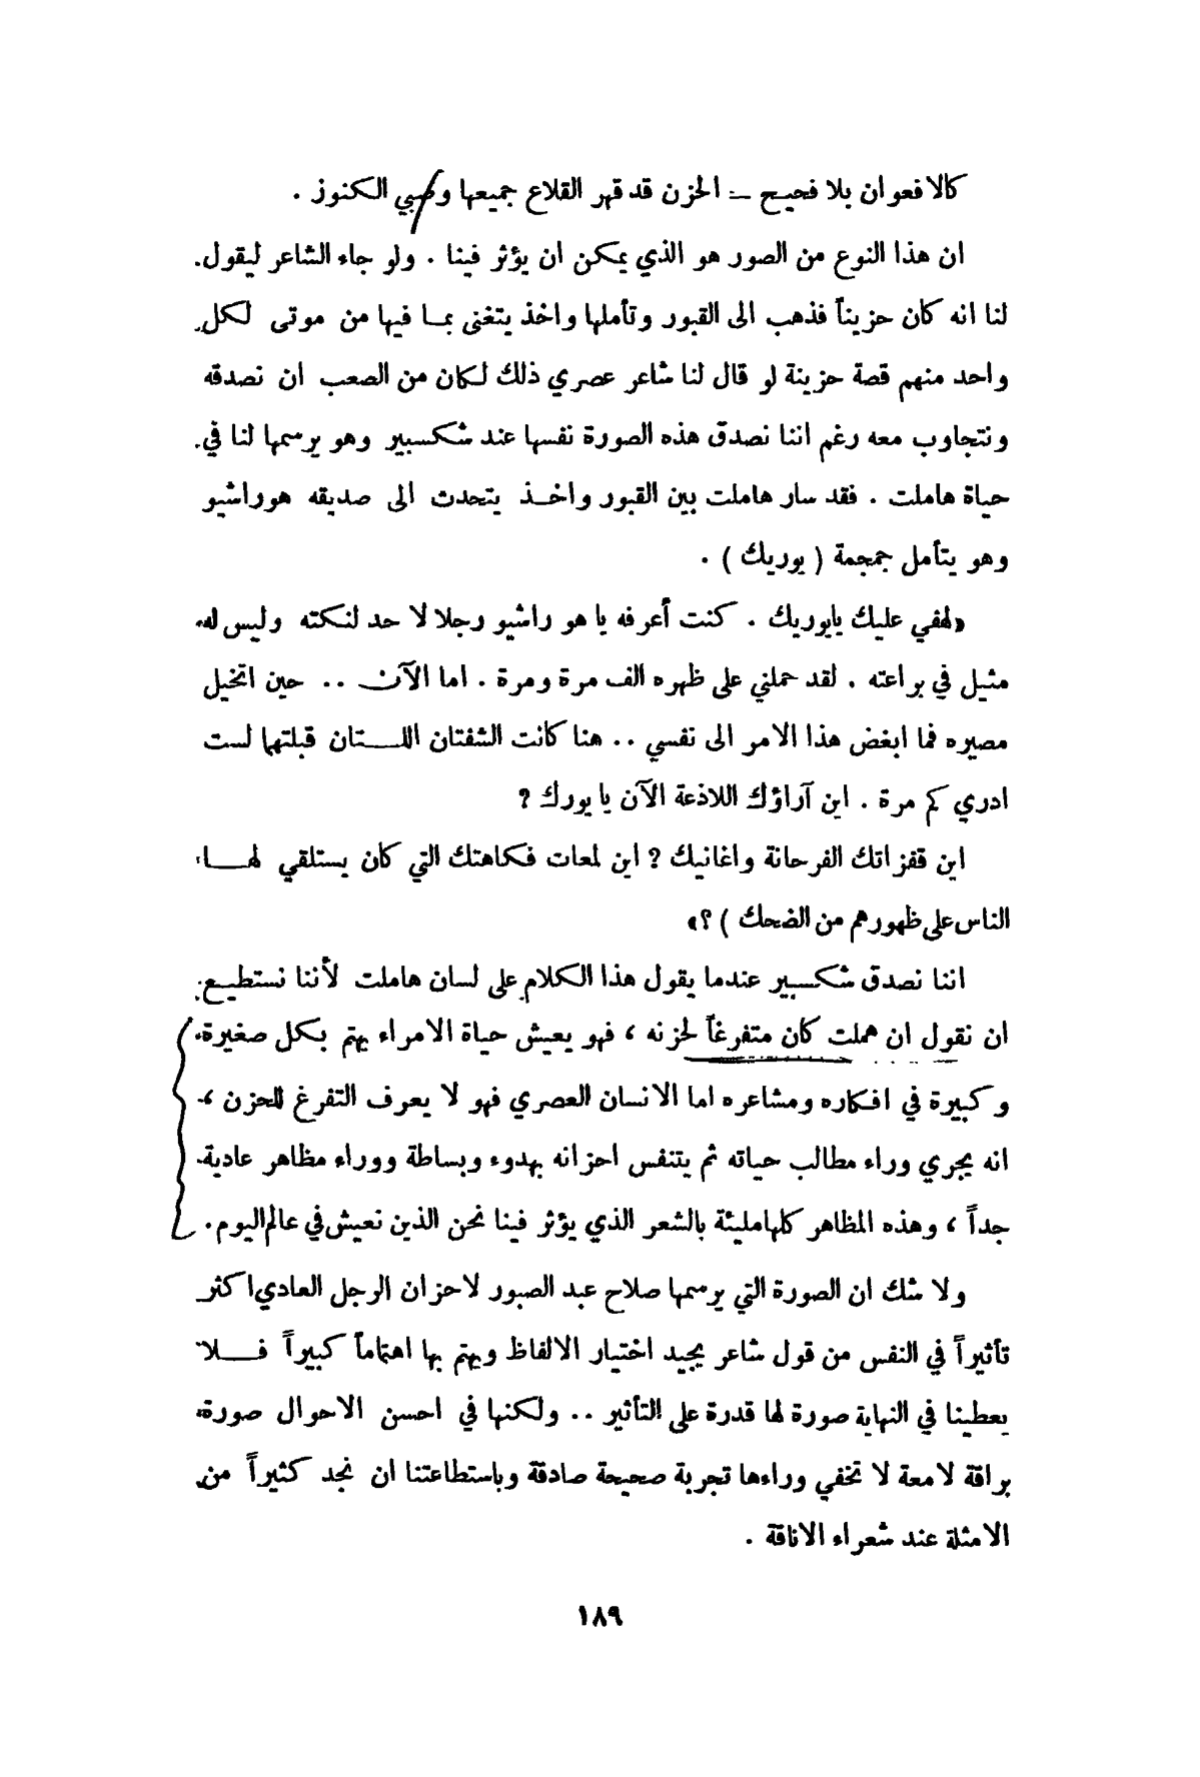 كالافعوان بلا فحيح – الحزن قد قهر القلاع جميعها وسبي الكنوز .
ان هذا النوع من الصور هو الذي يمكن ان يؤثر فينا . ولو جاء الشاعر ليقول
لنا انه كان حزيناً فذهب الى القبور وتأملها واخذ يتغنى بمـا فيها من موتى لكل
واحد منهم قصة حزينة لو قال لنا شاعر عصري ذلك لكان من الصعب ان نصدقه
ونتجاوب معه رغم اننا نصدق هذه الصورة نفسها عند شكسبير وهو يرسمها لنا في
حياة هاملت . فقد سار هاملت بين القبور واخـذ يتحدث الى صديقه هوراشيو
وهو يتأمل جمجمة ( يوريك ) .
«لهفي عليك يايوريك . كنت أعرفه يا هو راشيو رجلا لا حد لنكته وليس له
مثيل في براعته . لقد حملني على ظهره الف مرة ومرة . اما الآن .. حين اتخيل
مصيره فما ابغض هذا الامر الى نفسي .. هنا كانت الشفتان اللـتان قبلتهما لست
ادري كم مرة . اين آراؤك اللاذعة الآن يا يورك ?
اين قفزاتك الفرحانة واغانيك ? اين لمعات فكاهتك التي كان يستلقي لهـا
الناس على ظهورهم من الضحك ) ؟»
اننا نصدق شكسبير عندما يقول هذا الكلام على لسان هاملت لأننا نستطيع
ان نقول ان هملت كان متفرغاً لحزنه ، فهو يعيش حياة الامراء يهتم بكل صغيرة
وكبيرة في افكاره ومشاعره اما الانسان العصري فهو لا يعرف التفرغ للحزن ،
انه يجري وراء مطالب حياته ثم يتنفس احزانه بهدوء وبساطة ووراء مظاهر عادية
جداً ، وهذه المظاهر كلها مليئة بالشعر الذي يؤثر فينا نحن الذين نعيش في عالم اليوم .
ولا شك ان الصورة التي يرسمها صلاح عبد الصبور لاحزان الرجل العادي اكثر
تأثيراً في النفس من قول شاعر يجيد اختيار الالفاظ ويهتم بها اهتماماً كبيراً فـلا
يعطينا في النهاية صورة لها قدرة على التأثير .. ولكنها في احسن الاحوال صورة
براقة لامعة لا تخفي وراءها تجربة صحيحة صادقة وباستطاعتنا ان نجد كثيراً من
الامثلة عند شعراء الاناقة .
١٨٩